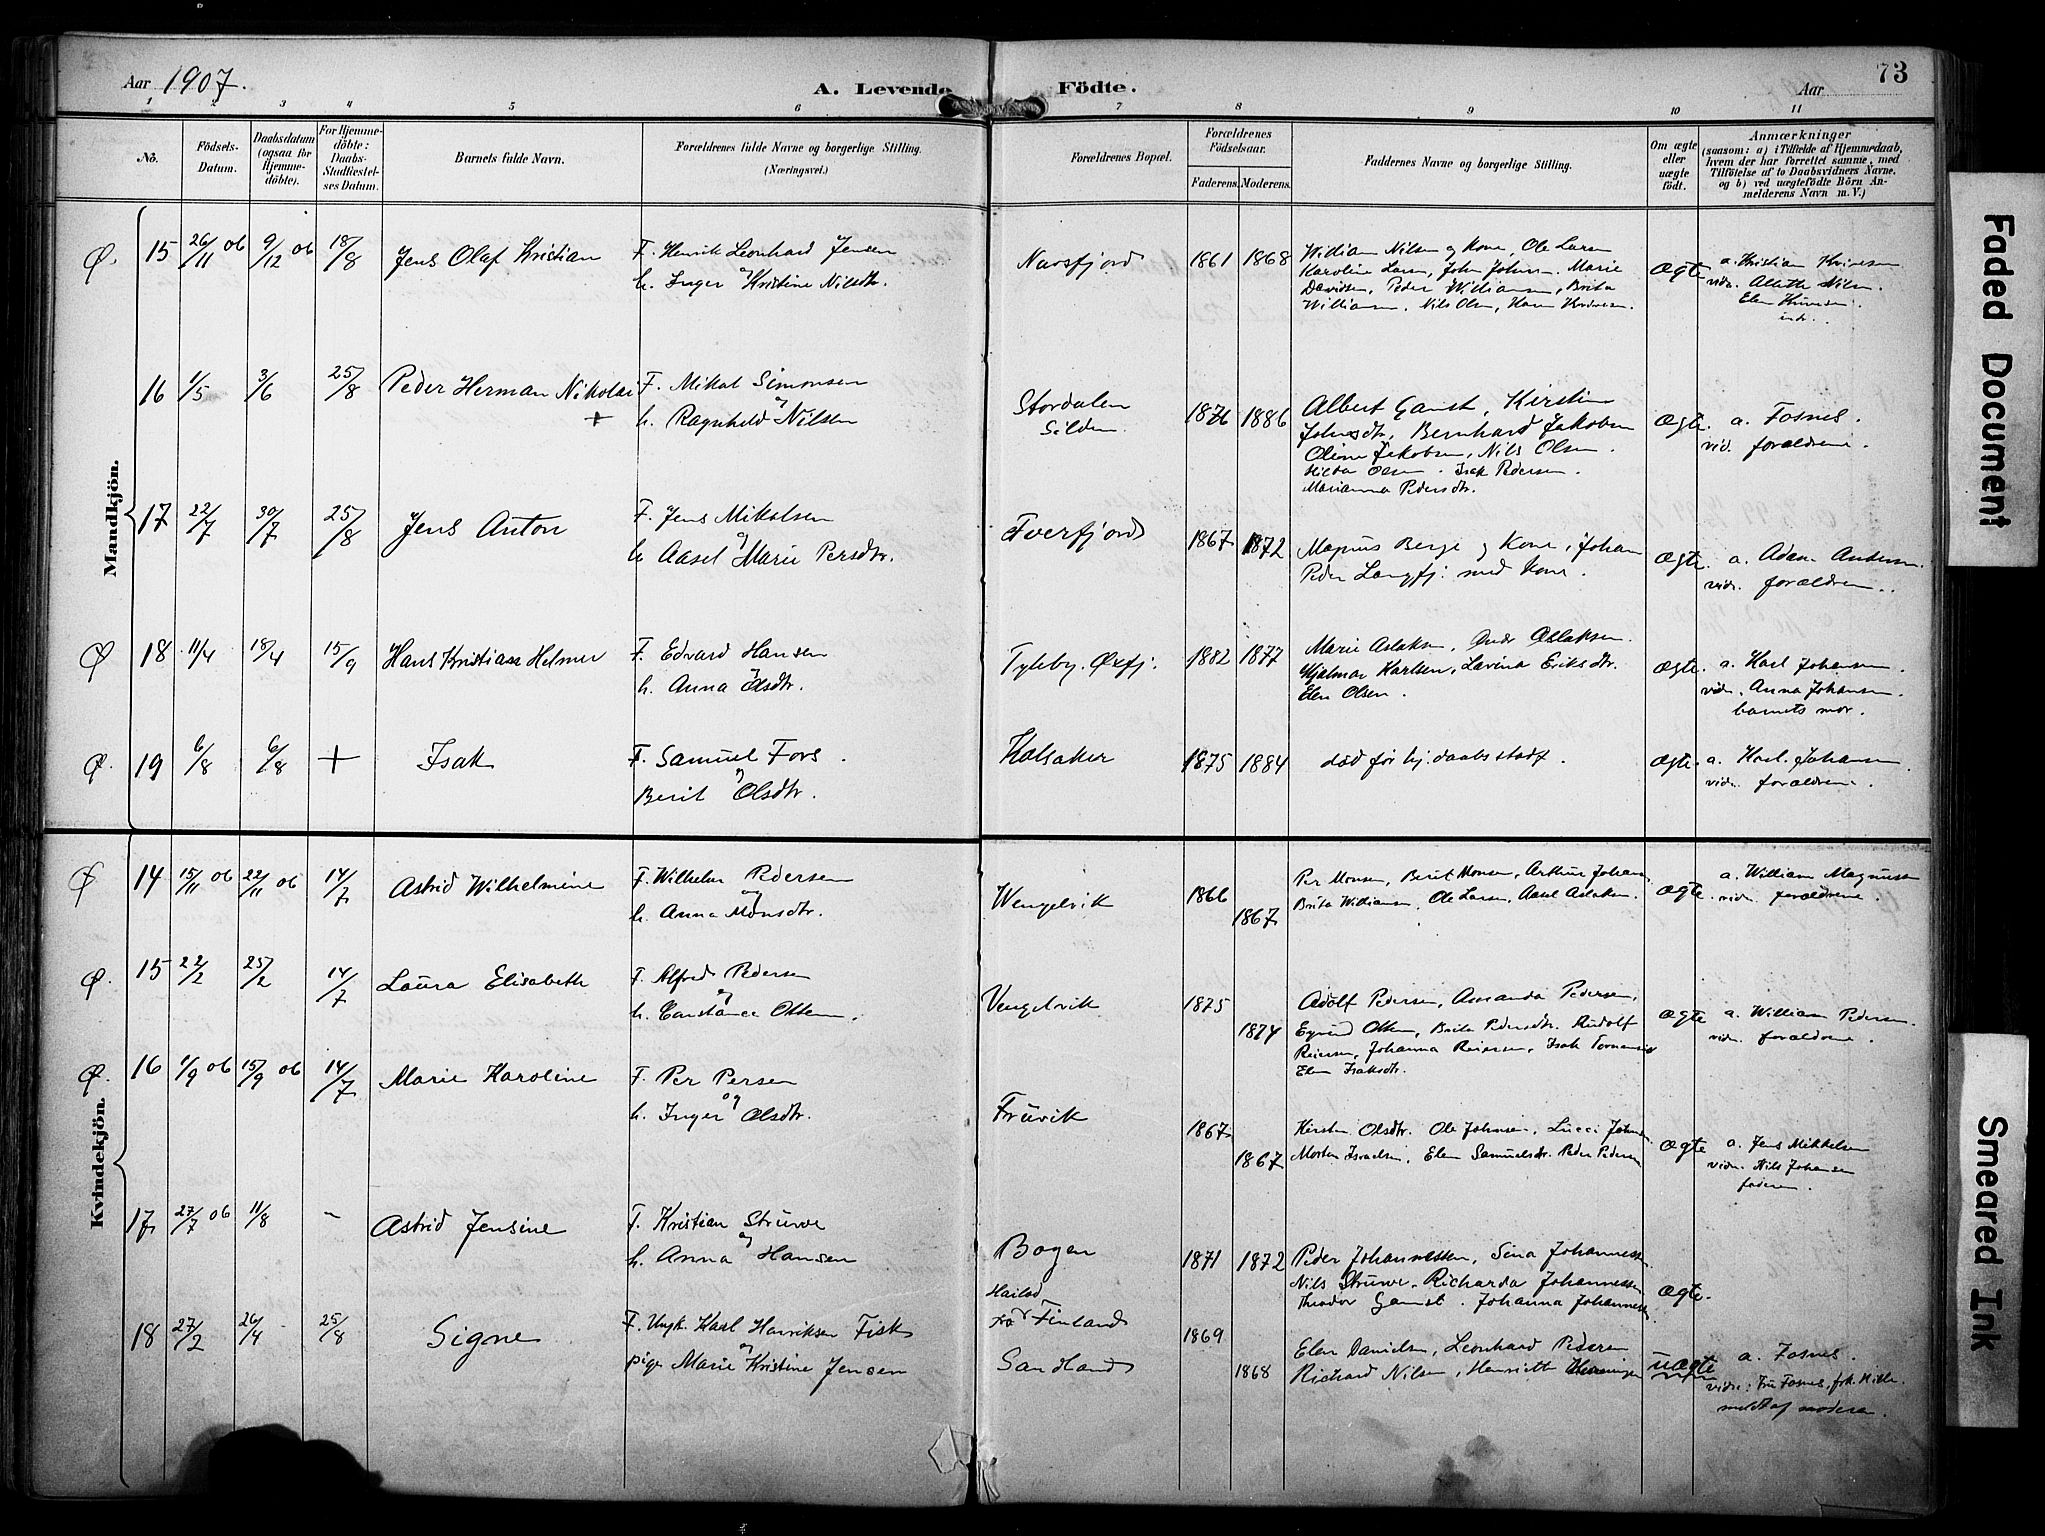 Aar 1907.
A. Levende Födte.
73
Aar
1 2 3 4 5 6 7 8 9 10 11
No.
Födsels-Datum.
Daabsdatum (ogsaa för Hjemme-döbte).
For Hjemme-döbte: Daabs-Stadfæstel-ses Datum.
Barnets fulde Navn.
Forældrenes fulde Navne og borgerlige Stilling.
(Næringsvei.)
Forældrenes Bopæl.
Forældrenes Födselsaar.
Faderens. Moderens.
Faddernes Navne og borgerlige Stilling.
Om ægte eller uægte födt.
Anmærkninger
(saasom: a) i Tilfælde af Hjemmedaab,
hvem der har forrettet samme, med
Tilföielse af to Daabsvidners Navne,
og b) ved uægtefödte Börn An-
melderens Navn m. V.)
Mandkjön.
Ø. 15 26/11 06 9/12 06 18/8 Jens Olaf Kristian
F. Henrik Leonhard Jensen
og
h. Inger Kristine Nilsdtr.
Navsfjord 1861 1868
William Nilsen og Kone, Ole Larsen
Karoline Larsen, John Johnsen. Marie
Davidsen, Peder Williamsen, Brita
Williamsen. Nils Olsen, Hans
ægte
a. Kristian
vidn.
16 1/5 3/6 25/8 Peder Herman Nikolai +
F. Mikal Simonsen
og
h. Ragnhild Nilsen
Stordalen
Silden
1876 1886
Albert Gamst, Kirstine
Johnsdtr, Bernhard Jakobsen
Oline Jakobsen, Nils Olsen.
Olsen. Isak Pedersen.
Marianna Pedersdtr.
ægte.
a. Fosnes.
vid. forældrene.
17 22/7 30/7 25/8 Jens Anton
F. Jens Mikalsen
og
h. Aasel Marie Persdtr.
Tverfjord 1867 1872
Magnus Berge og Kone, Johan
Peder Langfj. med Kone.
ægte.
a. Adam Andersen.
vidn. forældrene.
Ø 18 11/4 18/4 15/9 Hans Kristian Helmer
F. Edvard Hansen
og
h. Anna Olsdtr.
Tyleby. Øxfj. 1882 1877
Marie Aslaksen, Andr Aslaksen.
Hjalmar Karlsen, Lavina Eriksdtr.
Elen Olsen.
ægte.
a. Karl Johansen.
vidn. Anna Johansen.
barnets mor.
Ø. 19 6/8 6/8 + Isak
F. Samuel Fors.
og
Berit Olsdtr.
Kalsaker 1875 1884
død før hj. daabs stadf.
ægte.
a. Karl. Johansen.
vidn. forældrene.
Kvindekjön.
Ø 14 15/11 06 22/11 06 14/7 Astrid Wilhelmine
F. Wilhelm Pedersen
og
h. Anna Monsdtr.
Wengelvik 1866 1867
Per Monsen, Berit Monsen, Arthur Johans.
Brita Williamsen, Ole Larsen, Aasel Aslaksen.
ægte.
a. William Magnussen
vidn. forældrene.
Ø. 15 22/2 25/2 14/7 Laura Elisabeth
F. Alfred Pedersen
og
h. Constance Olsen.
Vengelvik 1875 1874
Adolf Pedersen, Amanda Pedersen,
Olsen, Brita Pedersdtr. Rudolf
Reiersen, Johanna Reiersen, Isak
Elen Isaksdtr.
ægte
a. William Pedersen.
vidn. forældrene.
Ø. 16 1/9 06 15/9 06 14/7 Marie Karoline
F. Per Persen
og
h. Inger Olsdtr.
Fruvik 1867 1867
Kirsten Olsdtr. Ole Johnsen, Lucci Johnsen
Morten Israelsen, Elen Samuelsdtr. Peder Pedersen
ægte
a. Jens Mikkelsen
vidn. Nils Johansen
faderen.
17 27/7 06 11/8 - Astrid Jensine
F. Kristian Struve
og
h. Anna Hansen
Bogen 1871 1872
Peder Johannessen, Sina Johannessen
Nils Struve. Richarda Johannessen
Theodor Gamst. Johanna Johannessen
ægte.
18 27/2 26/4 25/8 Signe
F. Ungk. Karl Henriksen Fisk
og
pige Marie Kristine Jensen
Finland
Sandland
1869 1868
Elen Danielsen, Leonhard Pedersen
Richard Nilsen, Henriette Henningsen
uægte
a. Fosnes.
vidn: Fru Fosnes, frk.
meldt af moderen.
Faded Document
Smeared Ink